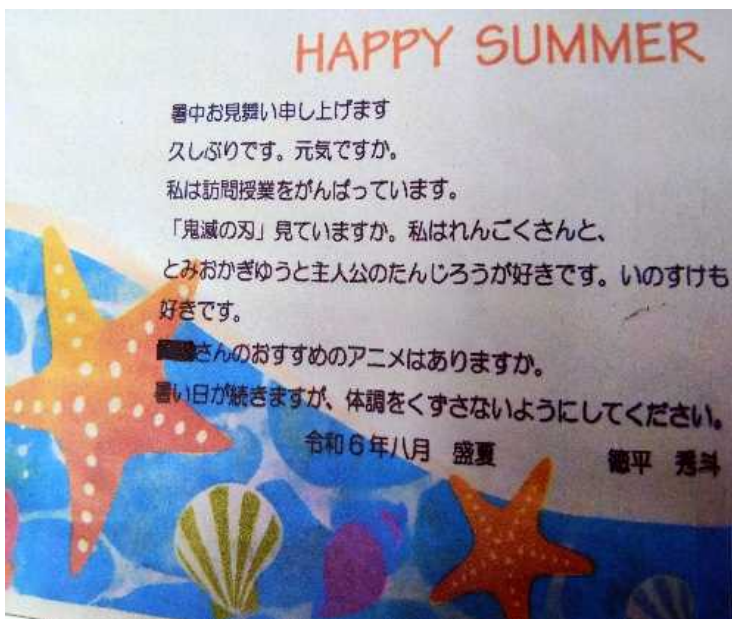 HAPPY SUMMER
暑中お見舞い申し上げます
久しぶりです。元気ですか。
私は訪問授業をがんばっています。
「鬼滅の刃」見ていますか。私はれんごくさんと、
とみおかぎゆうと主人公のたんじろうが好きです。いのすけも
好きです。
さんのおすすめのアニメはありますか。
暑い日が続きますが、体調をくずさないようにしてください。
令和6年八月 盛夏 徳平 秀斗